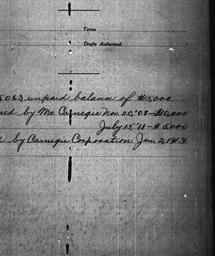 Terms
Drafts Authorized
5063, unpaid balance of $15000
ed by Mr. Carnegie Nov 20, '08 - $10,000
July 15, '11 - $5,000
d by Carnegie Corporation Jan. 2, 1913